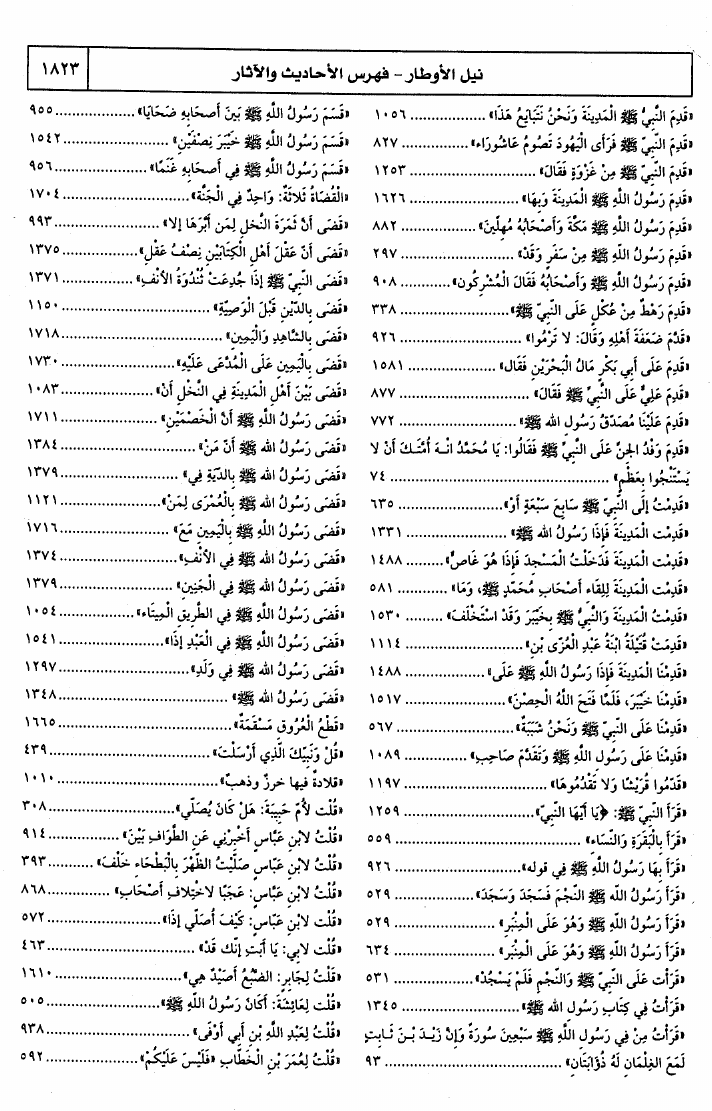 نيل الأوطار - فهرس الأحاديث والآثار
١٨٢٣
«قَدِمَ النَّبِيُّ ﷺ الْمَدِينَةَ وَنَحْنُ نَتَبَايَعُ هَذَا» .................. ١٠٥٦
«قَدِمَ النَّبِيُّ ﷺ فَرَأَى الْيَهُودَ تَصُومُ عَاشُورَاءَ» ............ ٨٢٧
«قَدِمَ النَّبِيُّ ﷺ مِنْ غَزْوَةٍ فَقَالَ» .......................... ١٢٥٣
«قَدِمَ رَسُولُ اللَّهِ ﷺ الْمَدِينَةَ وَبِهَا» ...................... ١٦٢٦
«قَدِمَ رَسُولُ اللَّهِ ﷺ مَكَّةَ وَأَصْحَابُهُ مُهِلِّينَ» ............... ٨٨٢
«قَدِمَ رَسُولُ اللَّهِ ﷺ مِنْ سَفَرٍ وَقَدْ» ...................... ٢٩٧
«قَدِمَ رَسُولُ اللَّهِ ﷺ وَأَصْحَابُهُ فَقَالَ الْمُشْرِكُونَ» ........... ٩٠٨
«قَدِمَ رَهْطٌ مِنْ عُكْلٍ عَلَى النَّبِيِّ ﷺ» ...................... ٣٣٨
«قَدَّمَ ضَعَفَةَ أَهْلِهِ وَقَالَ: لَا تَرْمُوا» ...................... ٩٢٦
«قَدِمَ عَلَى أَبِي بَكْرٍ مَالُ الْبَحْرَيْنِ فَقَالَ» .................. ١٥٨١
«قَدِمَ عَلِيٌّ عَلَى النَّبِيِّ ﷺ فَقَالَ» ........................ ٨٧٧
«قَدِمَ عَلَيْنَا مُصَدِّقُ رَسُولِ اللَّهِ ﷺ» ...................... ٧٧٢
«قَدِمَ وَفْدُ الجِنِّ عَلَى النَّبِيِّ ﷺ فَقَالُوا: يَا مُحَمَّدُ انهَ أُمَّتَكَ أَنْ لَا
يَسْتَنْجُوا بِعَظْمٍ» ...................................... ٧٤
«قَدِمْتُ إِلَى النَّبِيِّ ﷺ سَابِعَ سَبْعَةٍ أَوْ» ................... ٦٣٥
«قَدِمْتُ الْمَدِينَةَ فَإِذَا رَسُولُ اللَّهِ ﷺ» .................... ١٣٣١
«قَدِمْتُ الْمَدِينَةَ فَدَخَلْتُ الْمَسْجِدَ فَإِذَا هُوَ غَاصٌّ» ......... ١٤٨٨
«قَدِمْتُ الْمَدِينَةَ لِلِقَاءِ أَصْحَابِ مُحَمَّدٍ ﷺ، وَمَا» ............. ٥٨١
«قَدِمْتُ الْمَدِينَةَ وَالنَّبِيُّ ﷺ بِخَيْبَرَ وَقَدْ اسْتَخْلَفَ» ......... ١٥٣٠
«قَدِمَتْ قُتَيْلَةُ ابْنَةُ عَبْدِ الْعُزَّى بْنِ» ..................... ١١١٤
«قَدِمْنَا الْمَدِينَةَ فَإِذَا رَسُولُ اللَّهِ ﷺ عَلَى» .............. ١٤٨٨
«قَدِمْنَا خَيْبَرَ، فَلَمَّا فَتَحَ اللَّهُ الْحِصْنَ» ................. ١٥١٧
«قَدِمْنَا عَلَى النَّبِيِّ ﷺ وَنَحْنُ شَبَبَةٌ» ..................... ٥٦٧
«قَدِمْنَا عَلَى رَسُولِ اللَّهِ ﷺ وَتَقَدَّمَ صَاحِبٍ» .............. ١٠٨٩
«قَدِّمُوا قُرَيْشًا وَلَا تَقَدَّمُوهَا» ........................ ١١٩٧
«قَرَأَ النَّبِيُّ ﷺ: ﴿يَا أَيُّهَا النَّبِيُّ» ..................... ١٢٥٩
«قَرَأَ بِالْبَقَرَةِ وَالنِّسَاءِ» ............................. ٥٥٩
«قَرَأَ بِهَا رَسُولُ اللَّهِ ﷺ فِي قوله» ...................... ٩٢٦
«قَرَأَ رَسُولُ اللَّهِ ﷺ النَّجْمَ فَسَجَدَ وَسَجَدَ» ............... ٥٢٩
«قَرَأَ رَسُولُ اللَّهِ ﷺ وَهُوَ عَلَى الْمِنْبَرِ» .................. ٥٢٩
«قَرَأَ رَسُولُ اللَّهِ ﷺ وَهُوَ عَلَى الْمِنْبَرِ» .................. ٦٣٤
«قَرَأْتُ عَلَى النَّبِيِّ ﷺ وَالنَّجْمِ فَلَمْ يَسْجُدْ» ............... ٥٣١
«قَرَأْتُ فِي كِتَابِ رَسُولِ اللَّهِ ﷺ» ...................... ١٣٤٥
«قَرَأْتُ مِنْ فِي رَسُولِ اللَّهِ ﷺ سَبْعِينَ سُورَةً وَإِنَّ زَيْدَ بْنَ ثَابِتٍ
لَمَعَ الغِلْمَانِ لَهُ ذُؤَابَتَانِ» .............................. ٩٣
«قَسَمَ رَسُولُ اللَّهِ ﷺ بَيْنَ أَصْحَابِهِ ضَحَايَا» ................ ٩٥٥
«قَسَمَ رَسُولُ اللَّهِ ﷺ خَيْبَرَ نِصْفَيْنِ» .................... ١٥٤٢
«قَسَمَ رَسُولُ اللَّهِ ﷺ فِي أَصْحَابِهِ غَنَمًا» ................. ٩٥٦
«الْقُضَاةُ ثَلَاثَةٌ: وَاحِدٌ فِي الْجَنَّةِ» ..................... ١٧٠٤
«قَضَى أَنَّ ثَمَرَةَ النَّخْلِ لِمَن أَبَّرَهَا إلا» ................. ٩٩٣
«قَضَى أَنَّ عَقْلَ أَهْلِ الْكِتَابَيْنِ نِصْفُ عَقْلِ» .............. ١٣٧٥
«قَضَى النَّبِيُّ ﷺ إِذَا جُدِعَتْ ثُنْدُوَةُ الأَنْفِ» .............. ١٣٧١
«قَضَى بِالدَّيْنِ قَبْلَ الْوَصِيَّةِ» ........................ ١١٥٠
«قَضَى بِالشَّاهِدِ وَالْيَمِينِ» .......................... ١٧١٨
«قَضَى بِالْيَمِينِ عَلَى الْمُدَّعَى عَلَيْهِ» ................... ١٧٣٠
«قَضَى بَيْنَ أَهْلِ الْمَدِينَةِ فِي النَّخْلِ أَنْ» ................ ١٠٨٣
«قَضَى رَسُولُ اللَّهِ ﷺ أَنَّ الْخَصْمَيْنِ» ................... ١٧١١
«قَضَى رَسُولُ اللَّهِ ﷺ أَنَّ مَنْ» ........................ ١٣٨٤
«قَضَى رَسُولُ اللَّهِ ﷺ بِالدِّيَةِ فِي» ..................... ١٣٧٩
«قَضَى رَسُولُ اللَّهِ ﷺ بِالْعُمْرَى لِمَنْ» .................. ١١٢١
«قَضَى رَسُولُ اللَّهِ ﷺ بِالْيَمِينِ مَعَ» .................... ١٧١٦
«قَضَى رَسُولُ اللَّهِ ﷺ فِي الأَنْفِ» ..................... ١٣٧٤
«قَضَى رَسُولُ اللَّهِ ﷺ فِي الْجَنِينِ» .................... ١٣٧٩
«قَضَى رَسُولُ اللَّهِ ﷺ فِي الطَّرِيقِ الْمِيتَاءِ» .............. ١٠٥٤
«قَضَى رَسُولُ اللَّهِ ﷺ فِي الْعَبْدِ إِذَا» .................. ١٥٤١
«قَضَى رَسُولُ اللَّهِ ﷺ فِي وَلَدِ» ....................... ١٢٩٧
«قَضَى رَسُولُ اللَّهِ ﷺ» ............................. ١٣٤٨
«قَطْعُ الْعُرُوقِ مَسْقَمَةٌ» ............................ ١٦٦٥
«قُلْ وَنَبِيِّكَ الَّذِي أَرْسَلْتَ» ......................... ٤٣٩
«قلادةٌ فيها خرزٌ وذهبٌ» ........................... ١٠١٠
«قُلْتُ لأُمِّ حَبِيبَةَ: هَلْ كَانَ يُصَلِّي» ................... ٣٠٨
«قُلْتُ لابْنِ عَبَّاسٍ أَخْبِرْنِي عَنِ الطَّوَافِ بَيْنَ» ............ ٩١٤
«قُلْتُ لابْنِ عَبَّاسٍ صَلَّيْتُ الظُّهْرَ بِالْبَطْحَاءِ خَلْفَ» ......... ٣٩٣
«قُلْتُ لابْنِ عَبَّاسٍ: عَجَبًا لاخْتِلَافِ أَصْحَابِ» ............. ٨٦٨
«قُلْتُ لابْنِ عَبَّاسٍ: كَيْفَ أُصَلِّي إِذَا» .................. ٥٧٢
«قُلْتُ لأبي: يَا أَبَتِ إِنَّكَ قَدْ» ....................... ٤٦٣
«قُلْتُ لِجَابِرٍ: الضَّبُعُ أَصَيْدٌ هِيَ» .................... ١٦١٠
«قُلْتُ لِعَائِشَةَ: أَكَانَ رَسُولُ اللَّهِ ﷺ» ................. ٥٠٥
«قُلْتُ لِعَبْدِ اللَّهِ بْنِ أَبِي أَوْفَى» ...................... ٩٣٨
«قُلْتُ لِعُمَرَ بْنِ الْخَطَّابِ «فَلَيْسَ عَلَيْكُمْ» ............... ٥٩٢